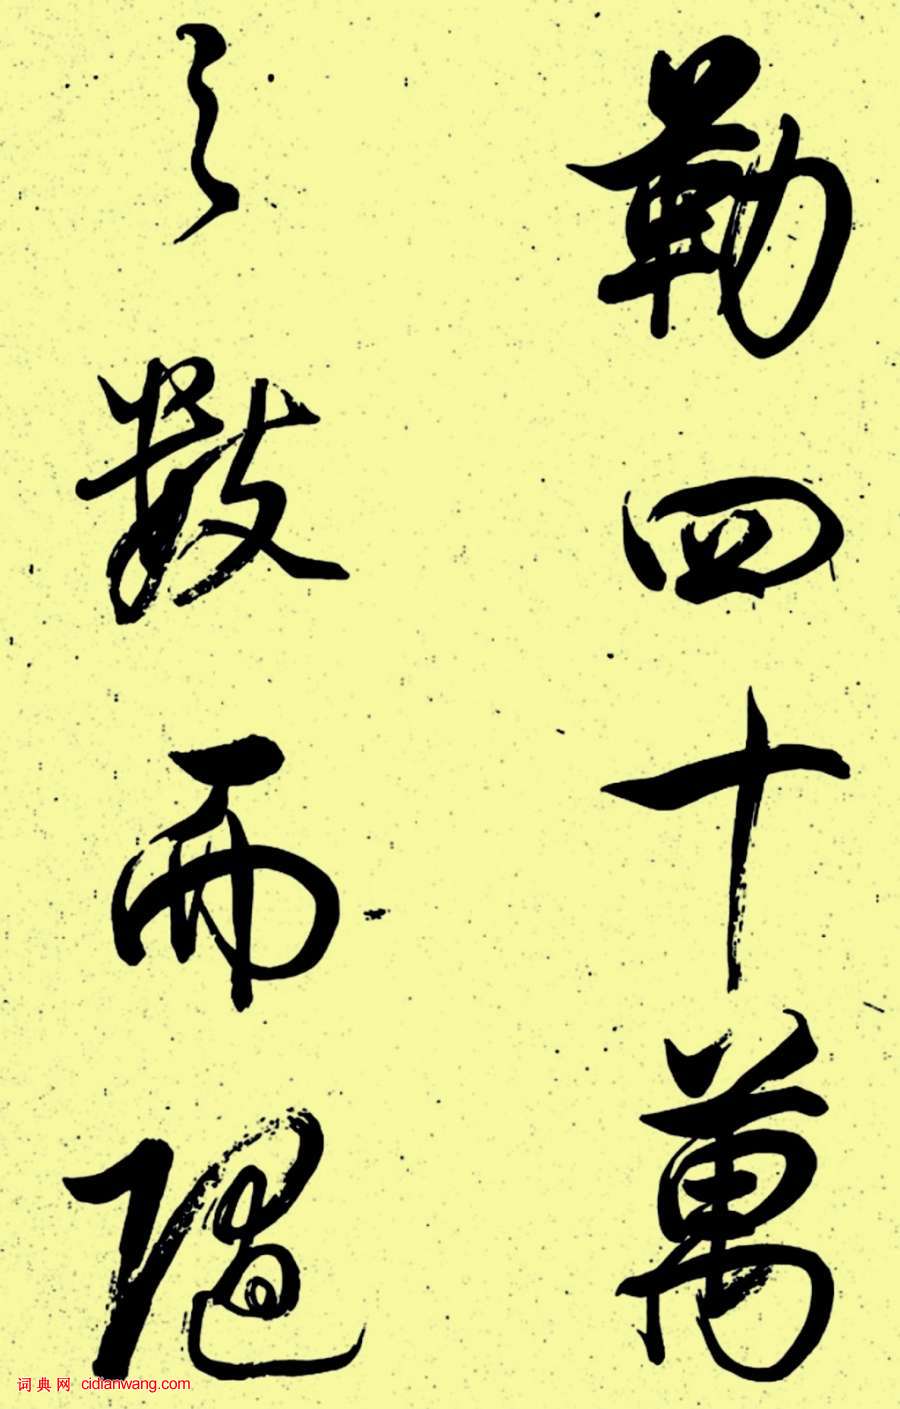 勒四十萬
之數而隨
词典网 cidianwang.com